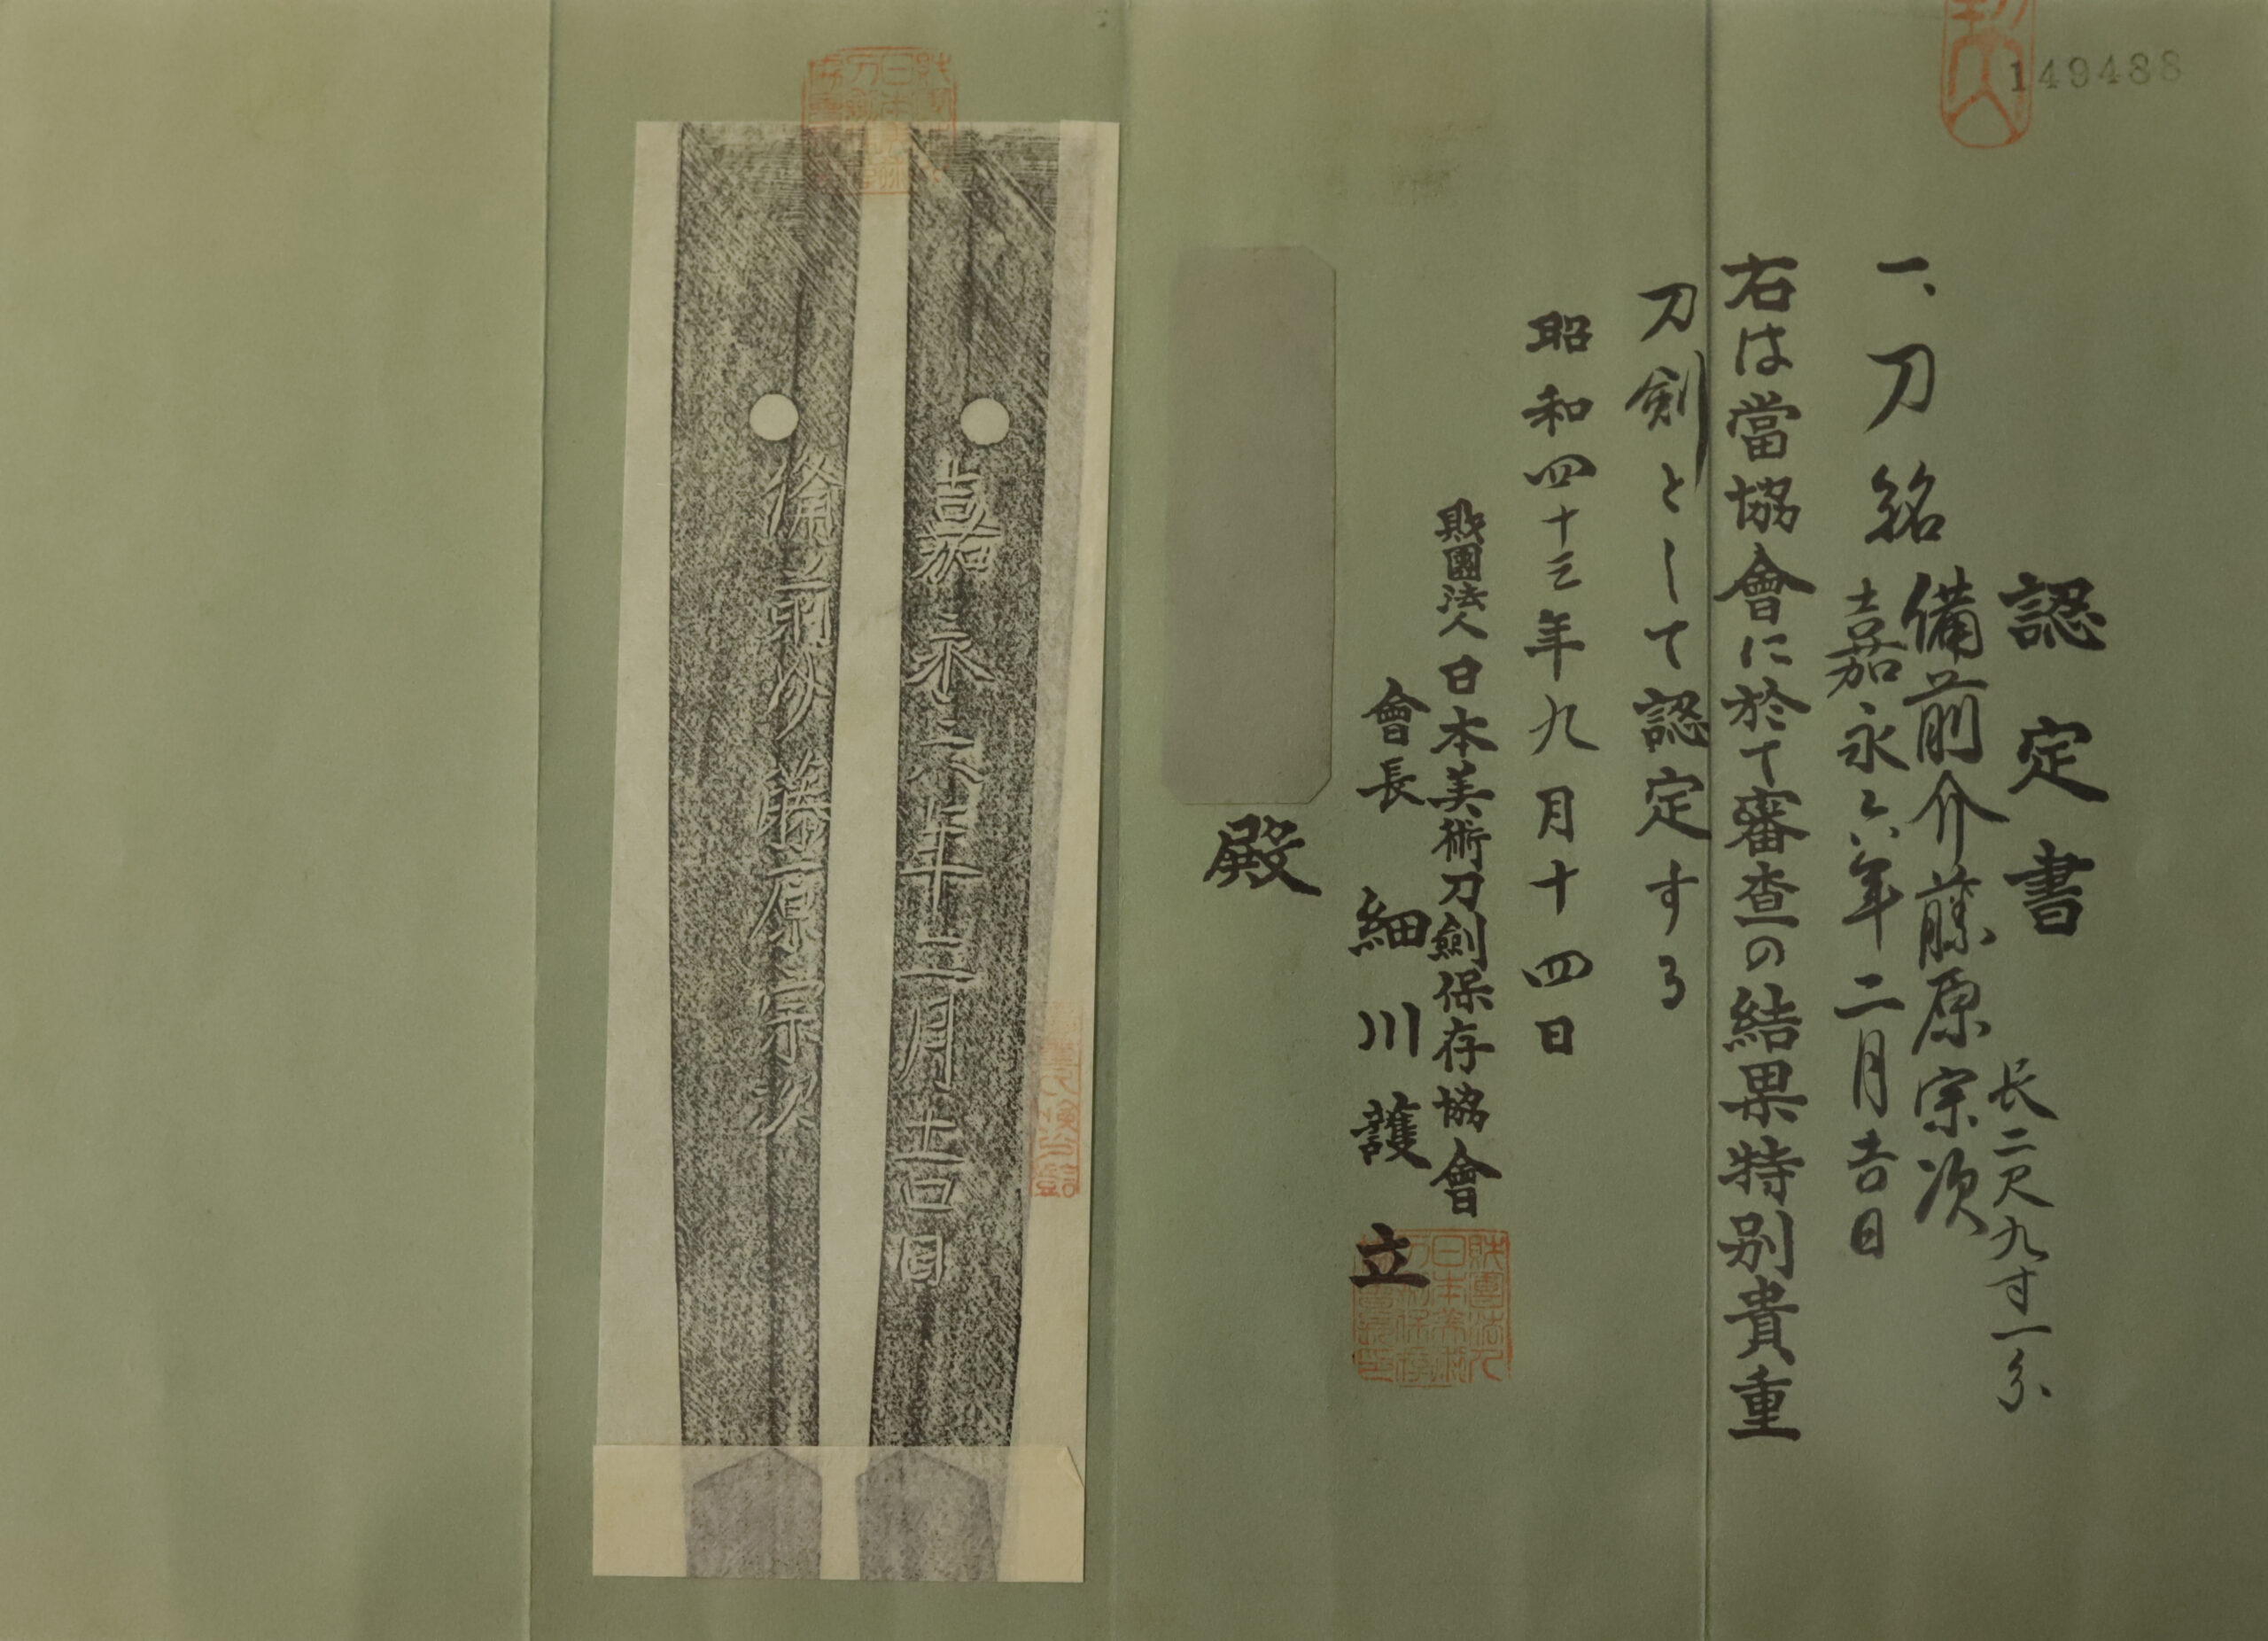 149488
認定書
長二尺九寸一分
一、刀 銘 備前介藤原宗次
嘉永六年二月吉日
右は當協會に於て審査の結果特別貴重
刀剣として認定する
昭和四十三年九月十四日
財團法人日本美術刀劍保存協會
會長 細川護立
殿
嘉永六年二月吉日
備前介藤原宗次